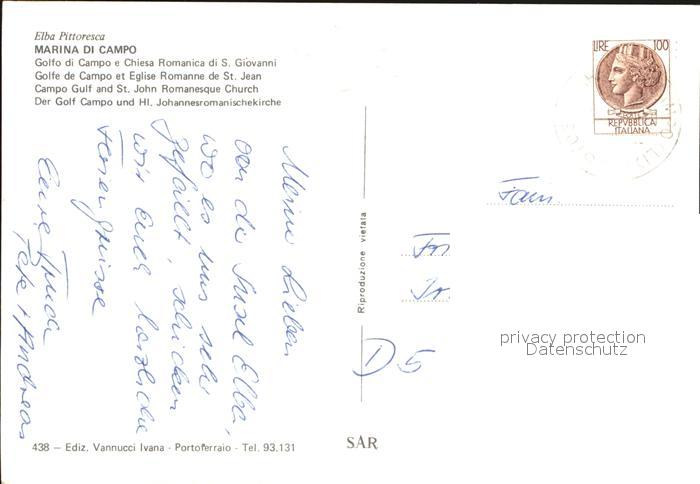 Elba Pittoresca
MARINA DI CAMPO
Golfo di Campo e Chiesa Romanica di S. Giovanni
Golfe de Campo et Eglise Romanne de St. Jean
Campo Gulf and St. John Romanesque Church
Der Golf Campo und Hl. Johannesromanischekirche
Meine Lieben
von der Insel Elba,
wo es uns sehr
gefällt, schicken
wir Euch herzliche
Feriengrüsse
Eure Trudi
+ Andreas
438 — Ediz. Vannucci Ivana - Portoferraio - Tel. 93.131
Riproduzione vietata
SAR
LIRE 100
REPVBBLICA
ITALIANA
Fam.
D 5
privacy protection
Datenschutz